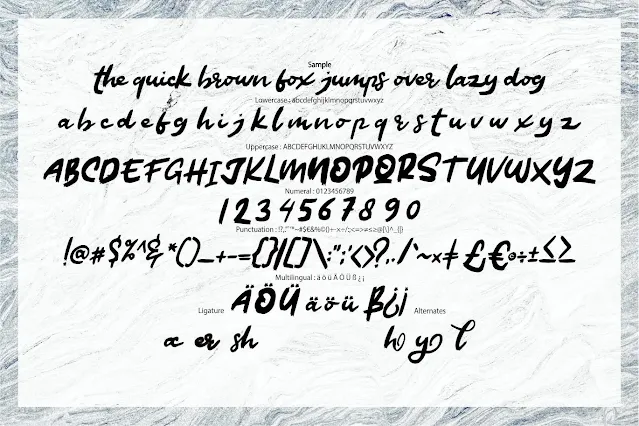 Sample
the quick brown fox jumps over lazy dog
Lowercase : abcdefghijklmnopqrstuvwxyz
a b c d e f g h i j k l m n o p q r s t u v w x y z
Uppercase : ABCDEFGHIJKLMNOPQRSTUVWXYZ
ABCDEFGHIJKLMNOPQRSTUVWXYZ
Numeral : 0123456789
1 2 3 4 5 6 7 8 9 0
Punctuation :
!@#$%^&*()_+-={}|[]\:";'<>?,./`~×≠£€÷±≤≥
Multilingual : ä ö ü Ä Ö Ü ß ¿ ¡
ÄÖÜ äöü ß¿¡
Ligature
Alternates
er sh